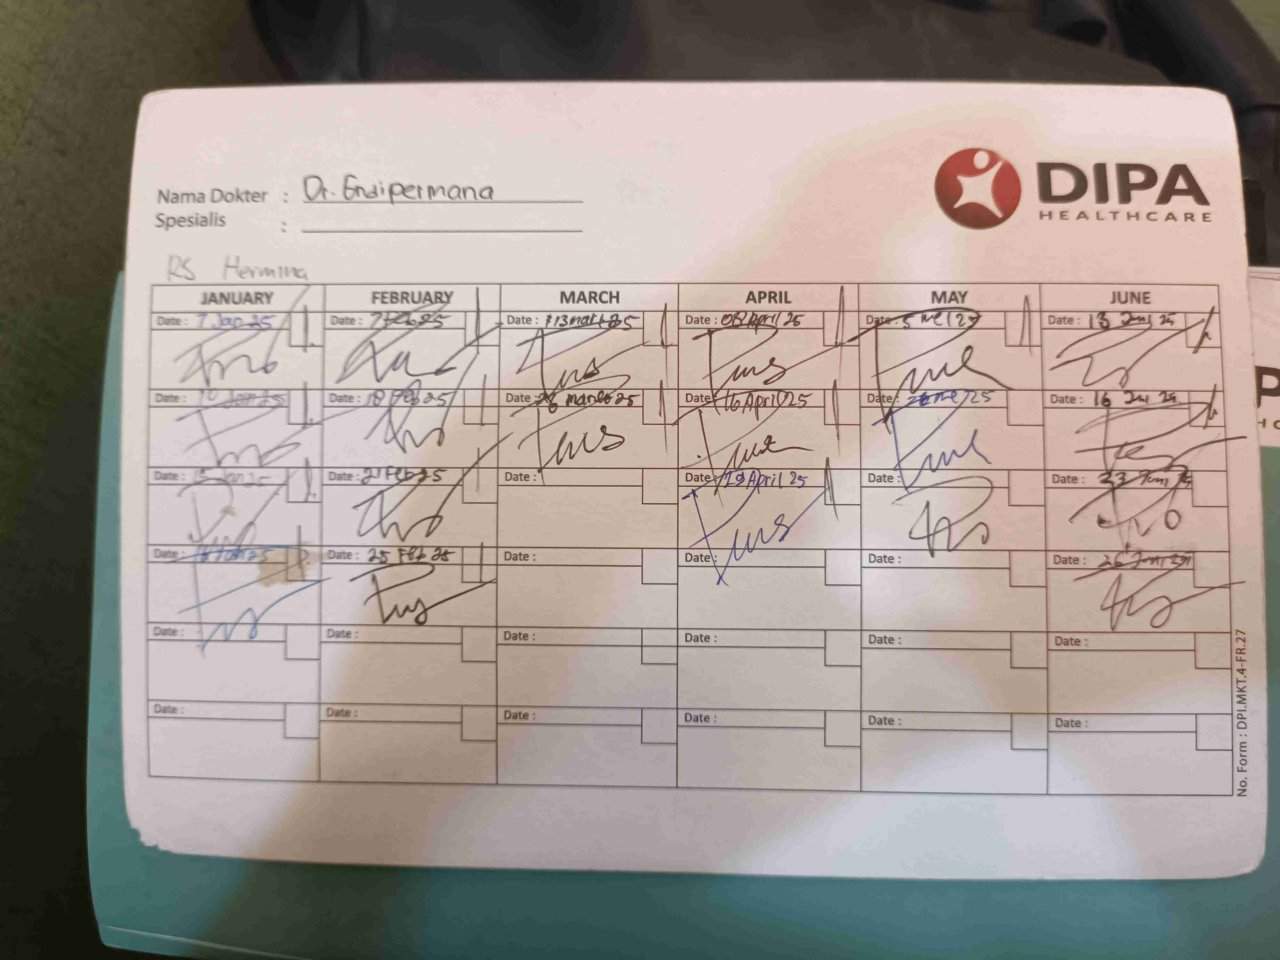 DIPA
HEALTHCARE
Nama Dokter : Dr. Endipermana
Spesialis :
RS Hermina
JANUARY FEBRUARY MARCH APRIL MAY JUNE
Date : 7 Jan 25 Date : 7 Feb 25 Date : 13 maret 25 Date : 08 April 25 Date : 5 mei 25 Date : 13 Jun 25
Date : Jan 25 Date : 18 Feb 25 Date : maret 25 Date : 16 April 25 Date : mei 25 Date : 16 Jun 25
Date : Jan 25 Date : 21 Feb 25 Date : Date : 29 April 25 Date : Date : 23 Juni 25
Date : Jan 25 Date : 25 Feb 25 Date : Date : Date : Date : 26 Juni 25
Date : Date : Date : Date : Date : Date :
Date : Date : Date : Date : Date : Date :
No. Form : DPI.MKT.4-FR.27